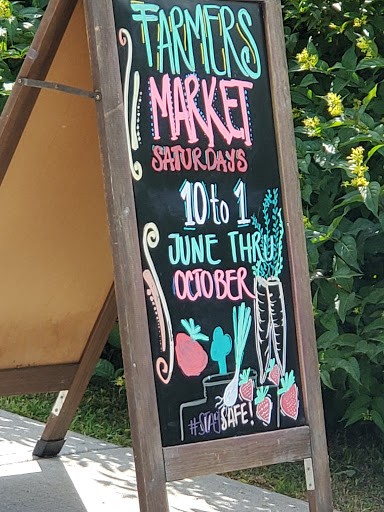 FARMERS
MARKET
SATURDAYS
10 to 1
JUNE THRU
OCTOBER
#STAYSAFE!